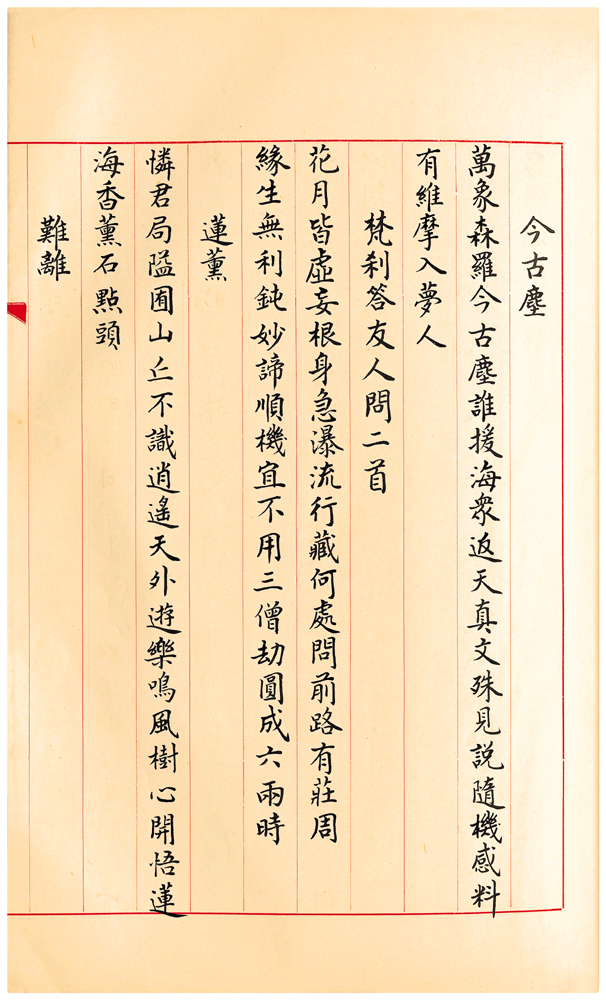 今古塵
萬象森羅今古塵誰援海衆返天真文殊見説隨機感料
有維摩入夢人
梵刹答友人問二首
花月皆虛妄根身急瀑流行藏何處問前路有莊周
緣生無利鈍妙諦順機宜不用三僧劫圓成六兩時
蓮薰
憐君局隘囿山丘不識逍遙天外遊樂鳴風樹心開悟蓮
海香薰石點頭
難離